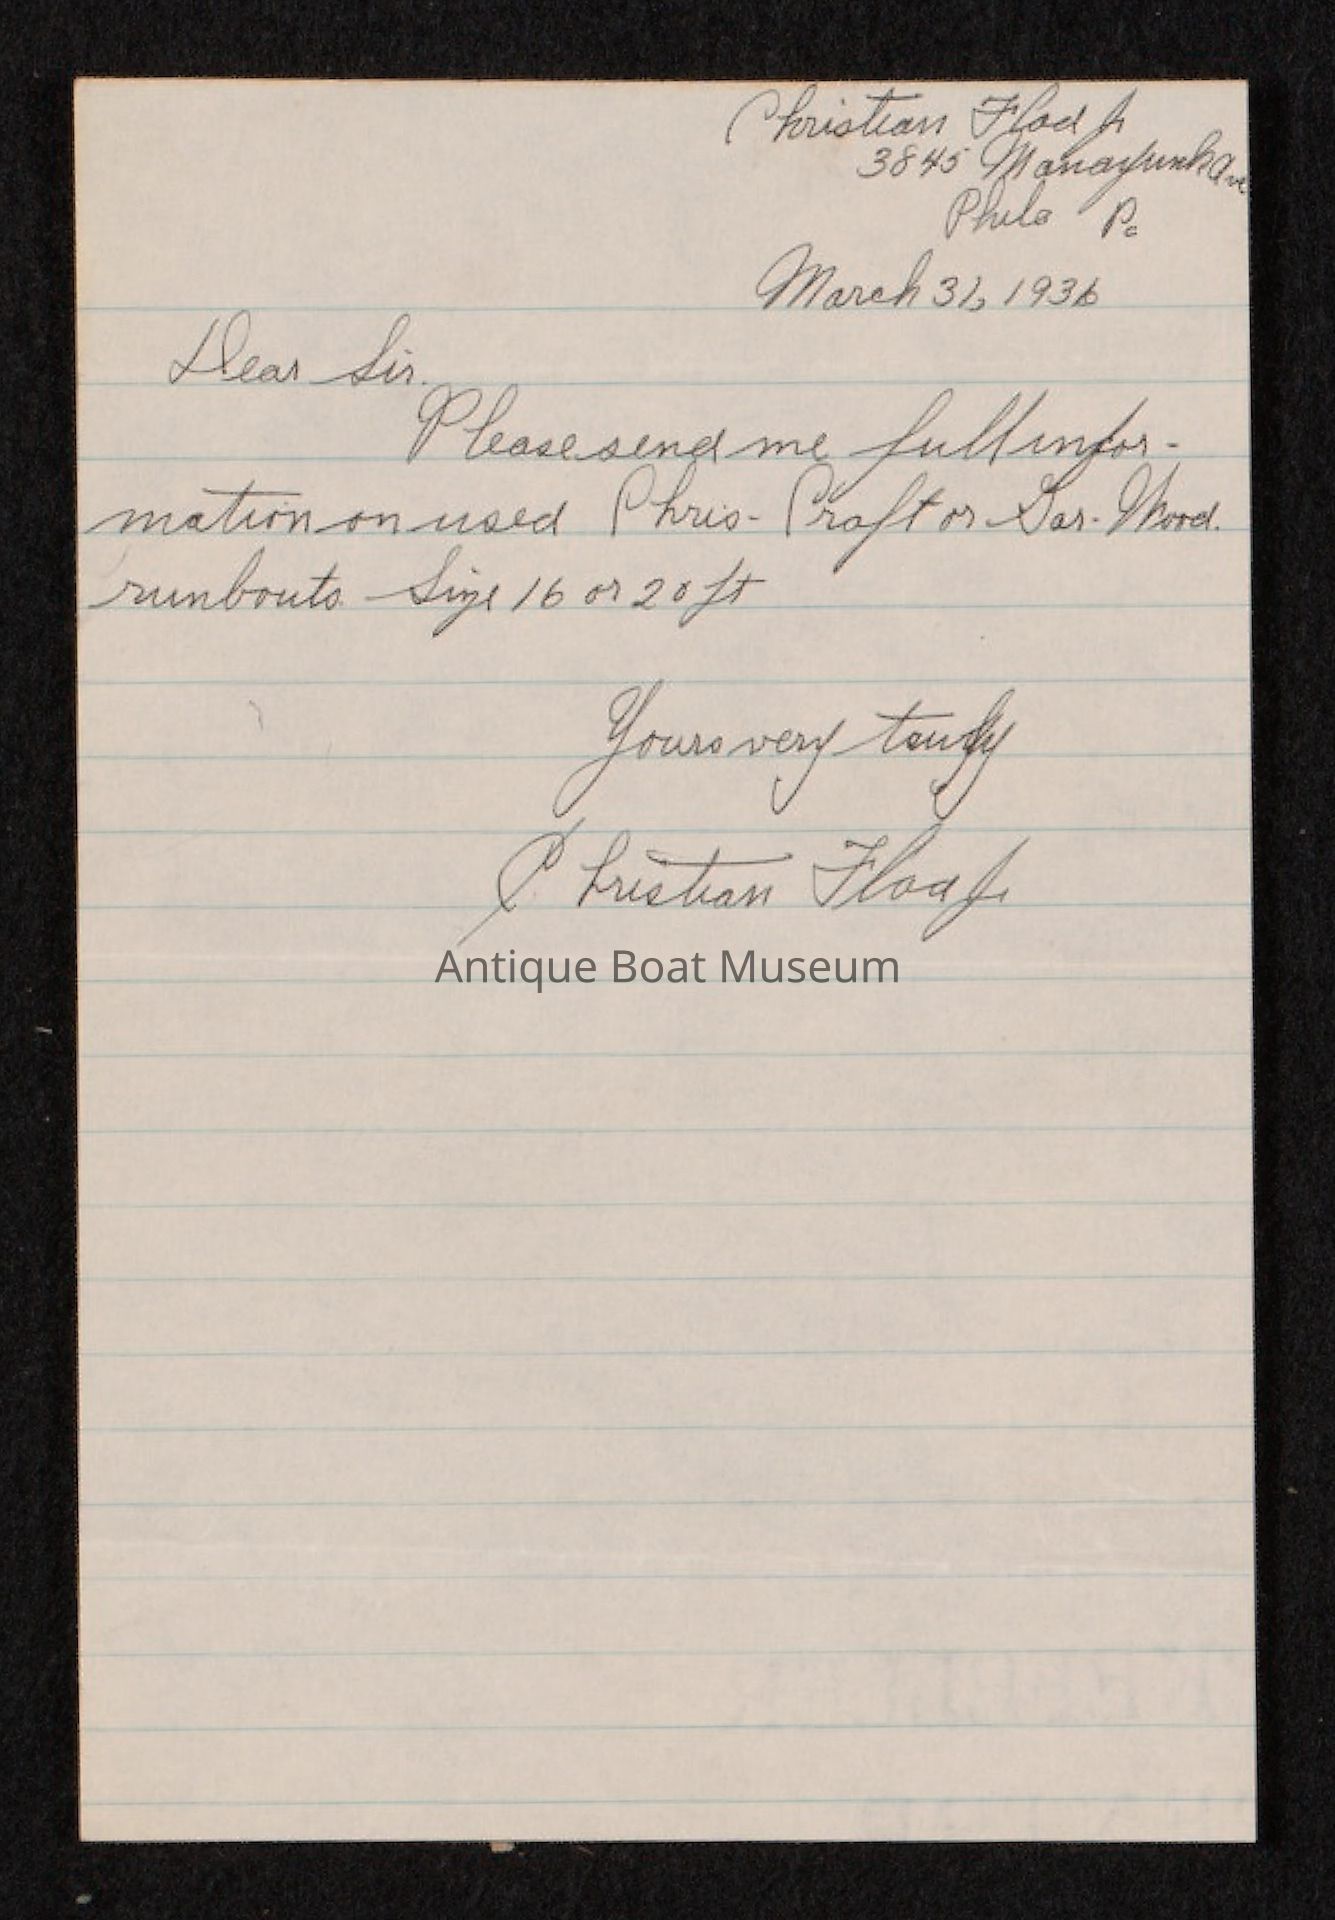 Christian Flad Jr
3845 Manayunk Ave
Phila Pa
March 31, 1936
Dear Sir.
Please send me full infor-
mation on used Chris-Craft or Gar-Wood.
runbouts Size 16 or 20 ft
Yours very truly
Christian Flad Jr
Antique Boat Museum